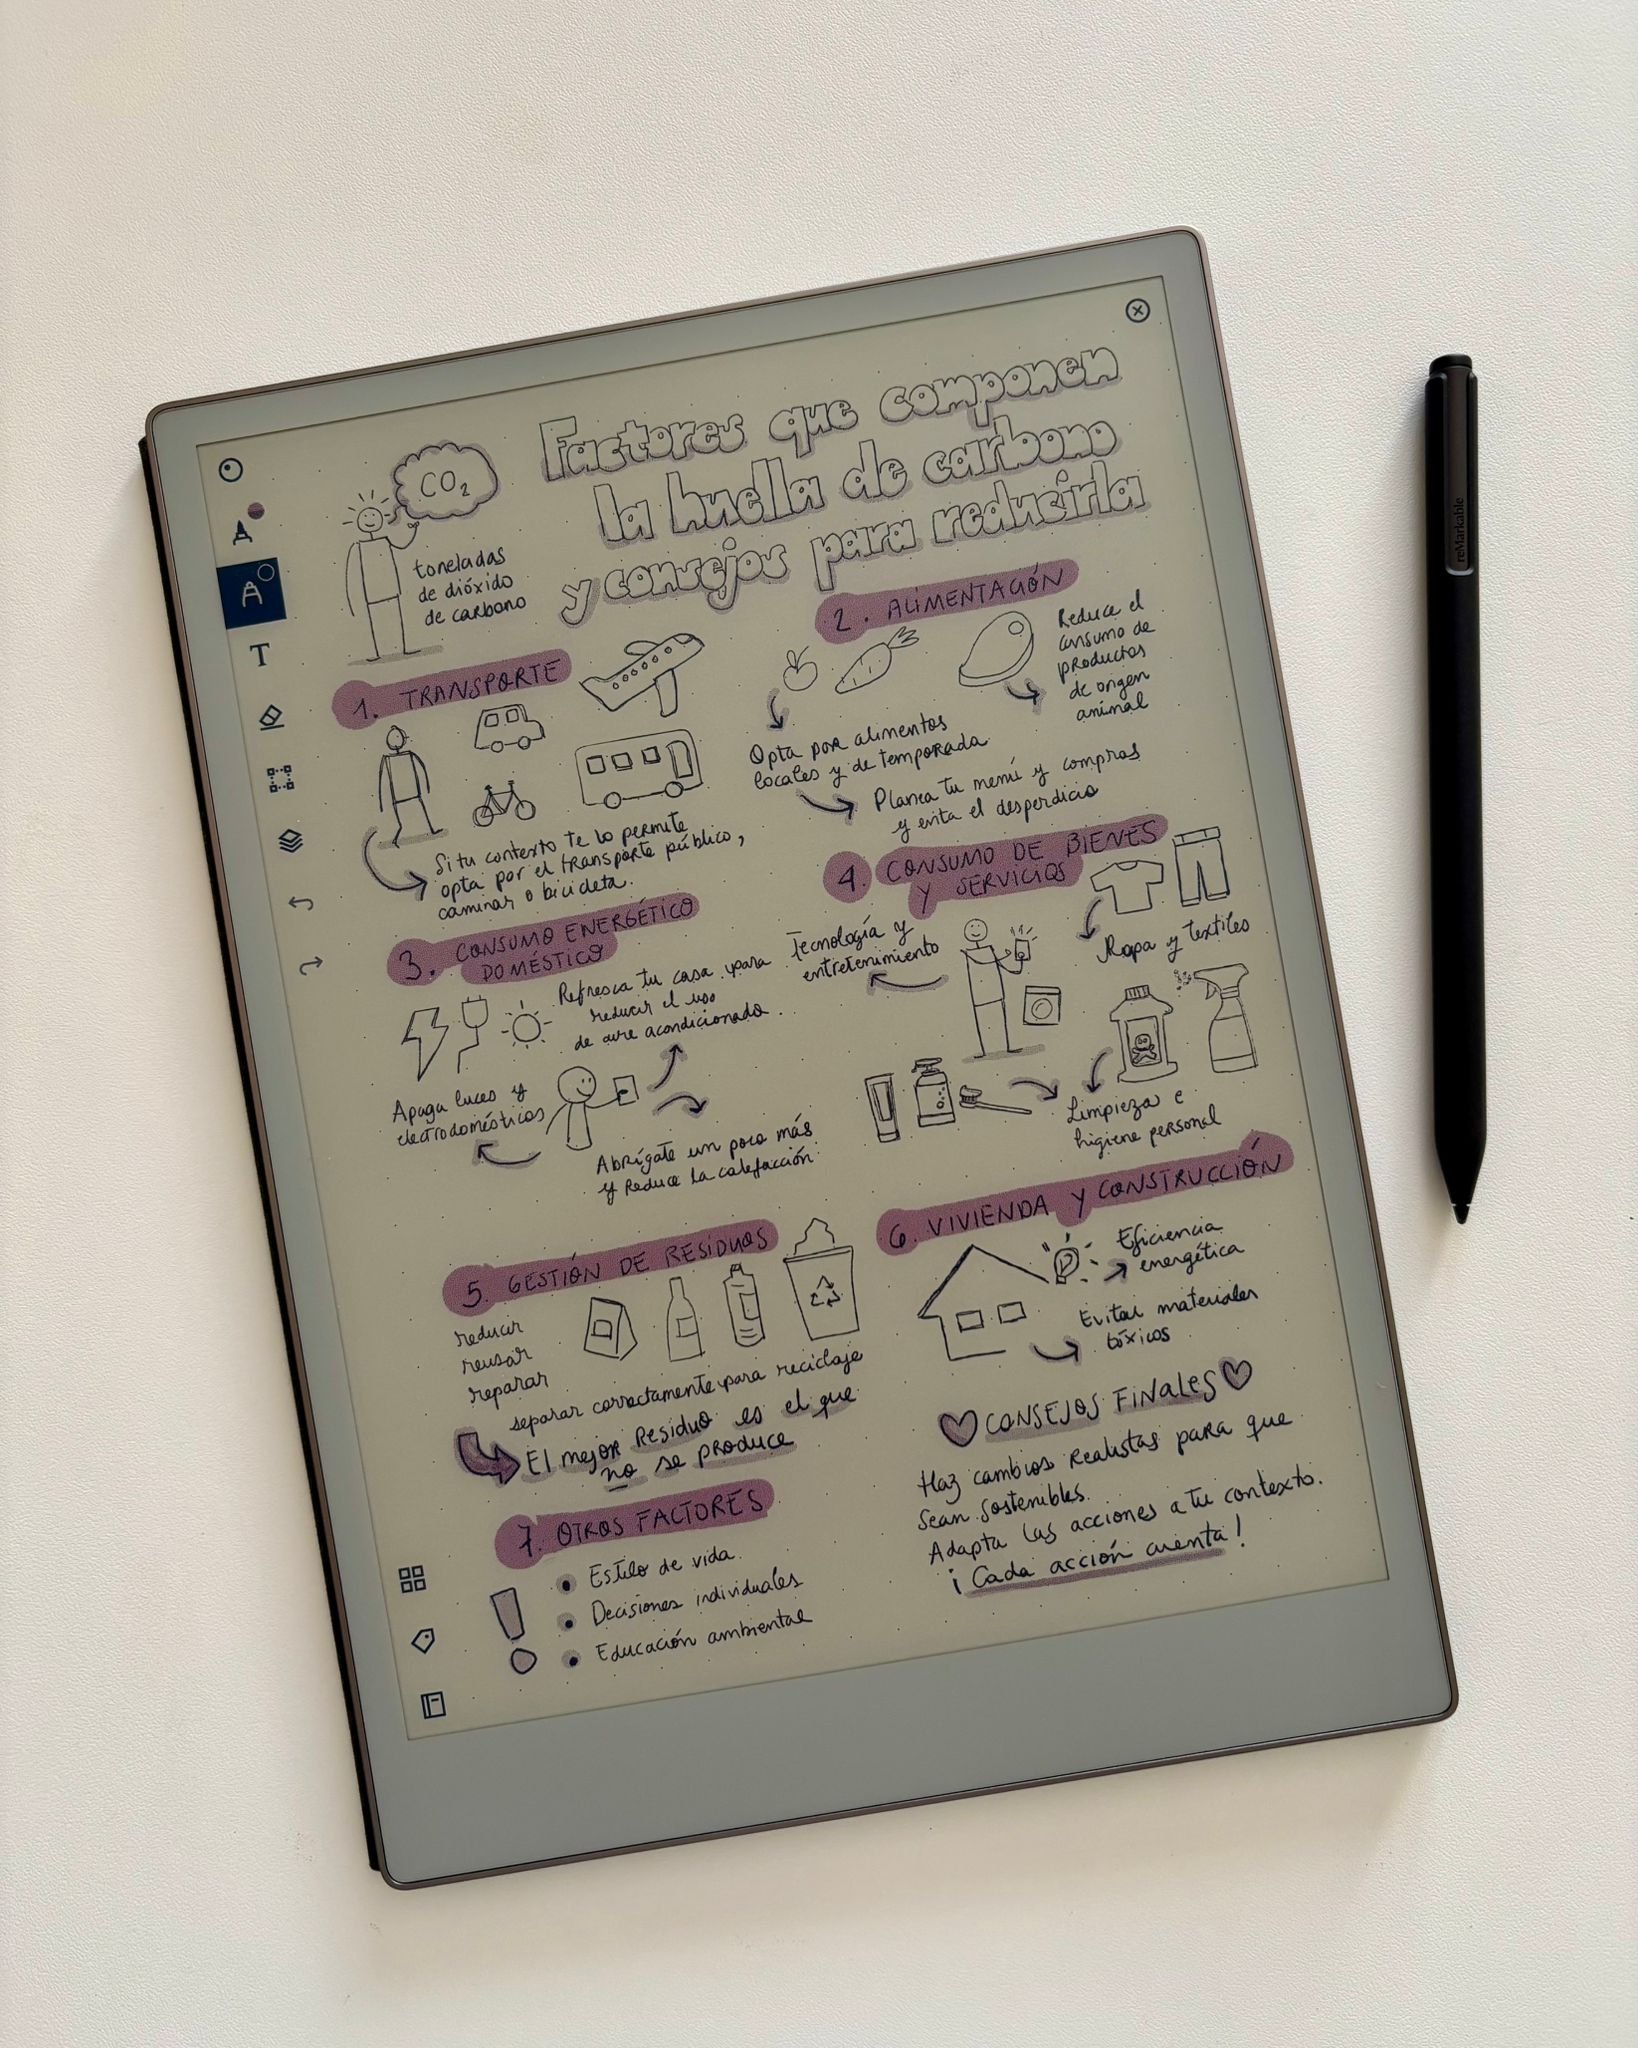 Factores que componen
la huella de carbono
y consejos para reducirla
CO2
toneladas
de dióxido
de carbono
1. TRANSPORTE
Si tu contexto te lo permite
opta por el transporte público,
caminar o bicicleta.
2. ALIMENTACIÓN
Reduce el
consumo de
productos
de origen
animal
Opta por alimentos
locales y de temporada
Planea tu menú y compras
y evita el desperdicio
3. CONSUMO ENERGÉTICO
DOMÉSTICO
Refresca tu casa para
reducir el uso
de aire acondicionado.
Apaga luces y
electrodomésticos
Abrígate un poco más
y reduce la calefacción.
4. CONSUMO DE BIENES
Y SERVICIOS
Tecnología y
entretenimiento
Ropa y textiles
Limpieza e
higiene personal
5. GESTIÓN DE RESIDUOS
reducir
reusar
reparar
separar correctamente para reciclaje
El mejor Residuo es el que
no se produce
6. VIVIENDA Y CONSTRUCCIÓN
Eficiencia
energética
Evitar materiales
tóxicos
7. OTROS FACTORES
Estilo de vida.
Decisiones individuales
Educación ambiental
CONSEJOS FINALES
Haz cambios Realistas para que
Sean Sostenibles.
Adapta las acciones a tu contexto.
¡Cada acción cuenta!
T
reMarkable